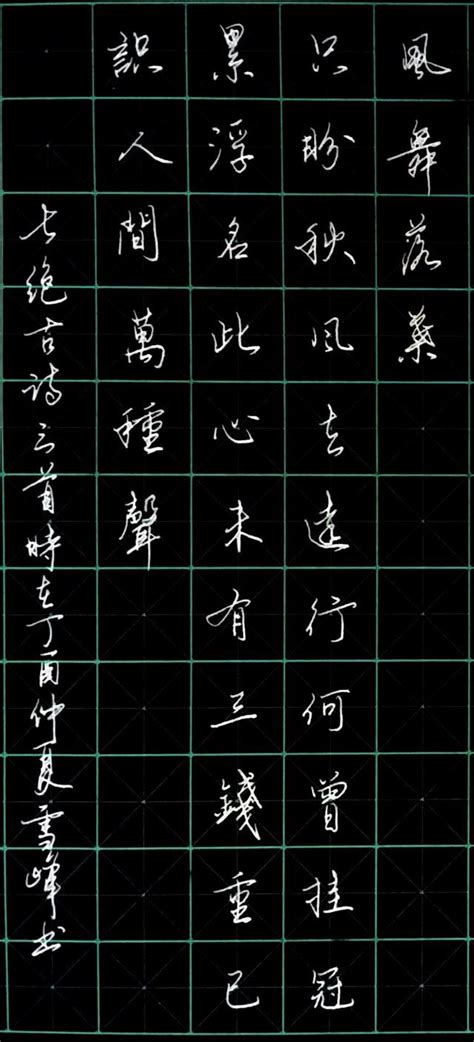 風舞落葉
只盼秋風去遠行何曾挂冠
累浮名此心未有三錢重已
識人間萬種聲
七绝古诗三首時在丁酉仲夏雪峰书